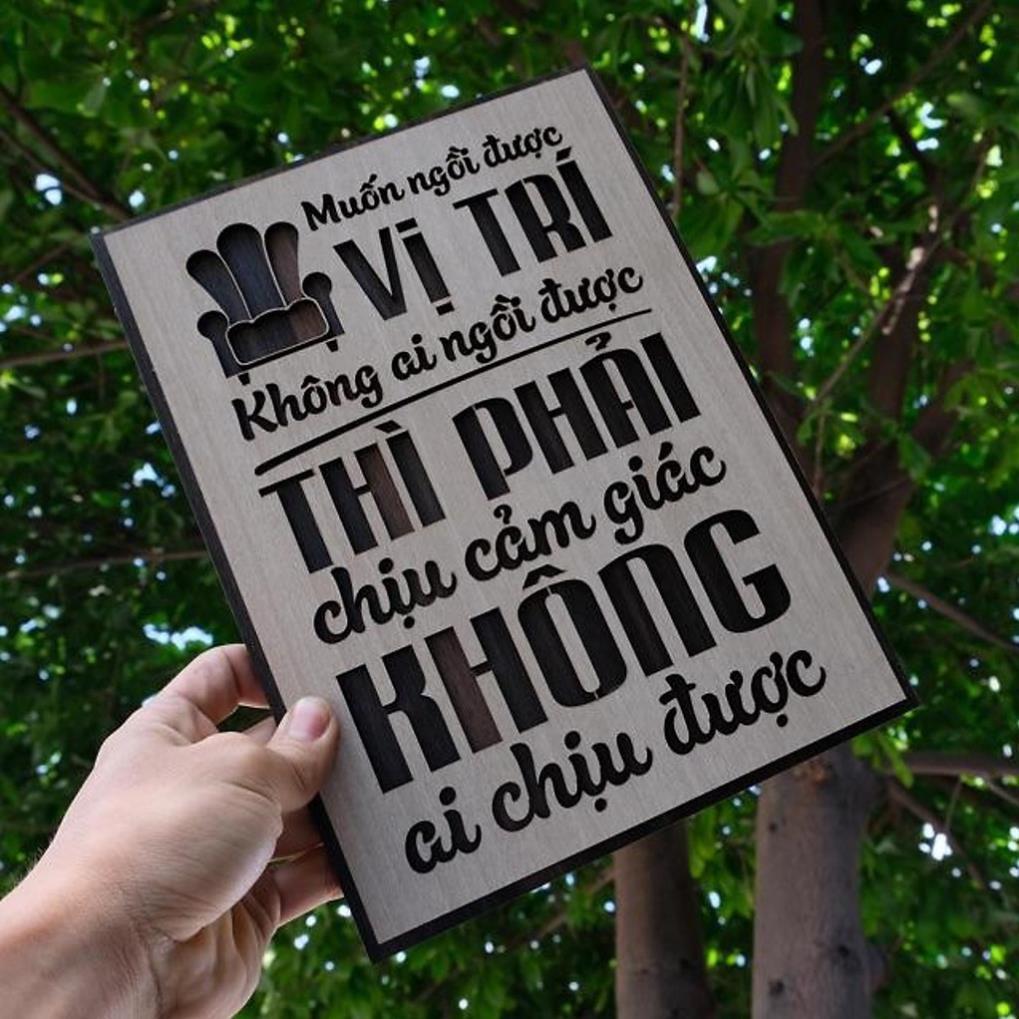 Muốn ngồi được
VỊ TRÍ
Không ai ngồi được
THÌ PHẢI
chịu cảm giác
KHÔNG
ai chịu được